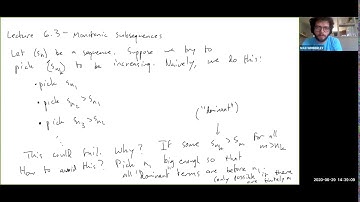 Lecture 6.3 - Monotonic subsequences
Let (sn) be a sequence. Suppose we try to
pick (snk) to be increasing. Naively, we do this:
• pick sn1
• pick sn2 > sn1
• pick sn3 > sn2
("dominant")
This could fail. Why? If some snk > sm for all m > nk
How to avoid this? Pick n1 big enough so that
all "dominant" terms are before n1.
(only possible if there are
2020-09-29 14:39:09